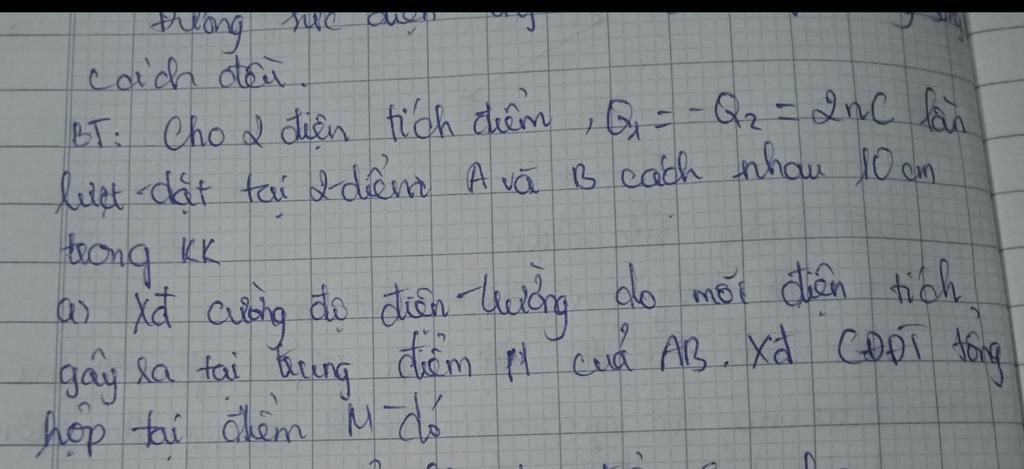 trường
cách đều.
BT: Cho 2 điện tích điểm, Q₁ = -Q₂ = 2nC lần
lượt đặt tại 2 điểm A và B cách nhau 10 cm
trong KK
a) Xđ cường độ điện trường do mỗi điện tích
gây ra tại trung điểm M của AB. Xđ CĐĐT tổng
hợp tại điểm M đó